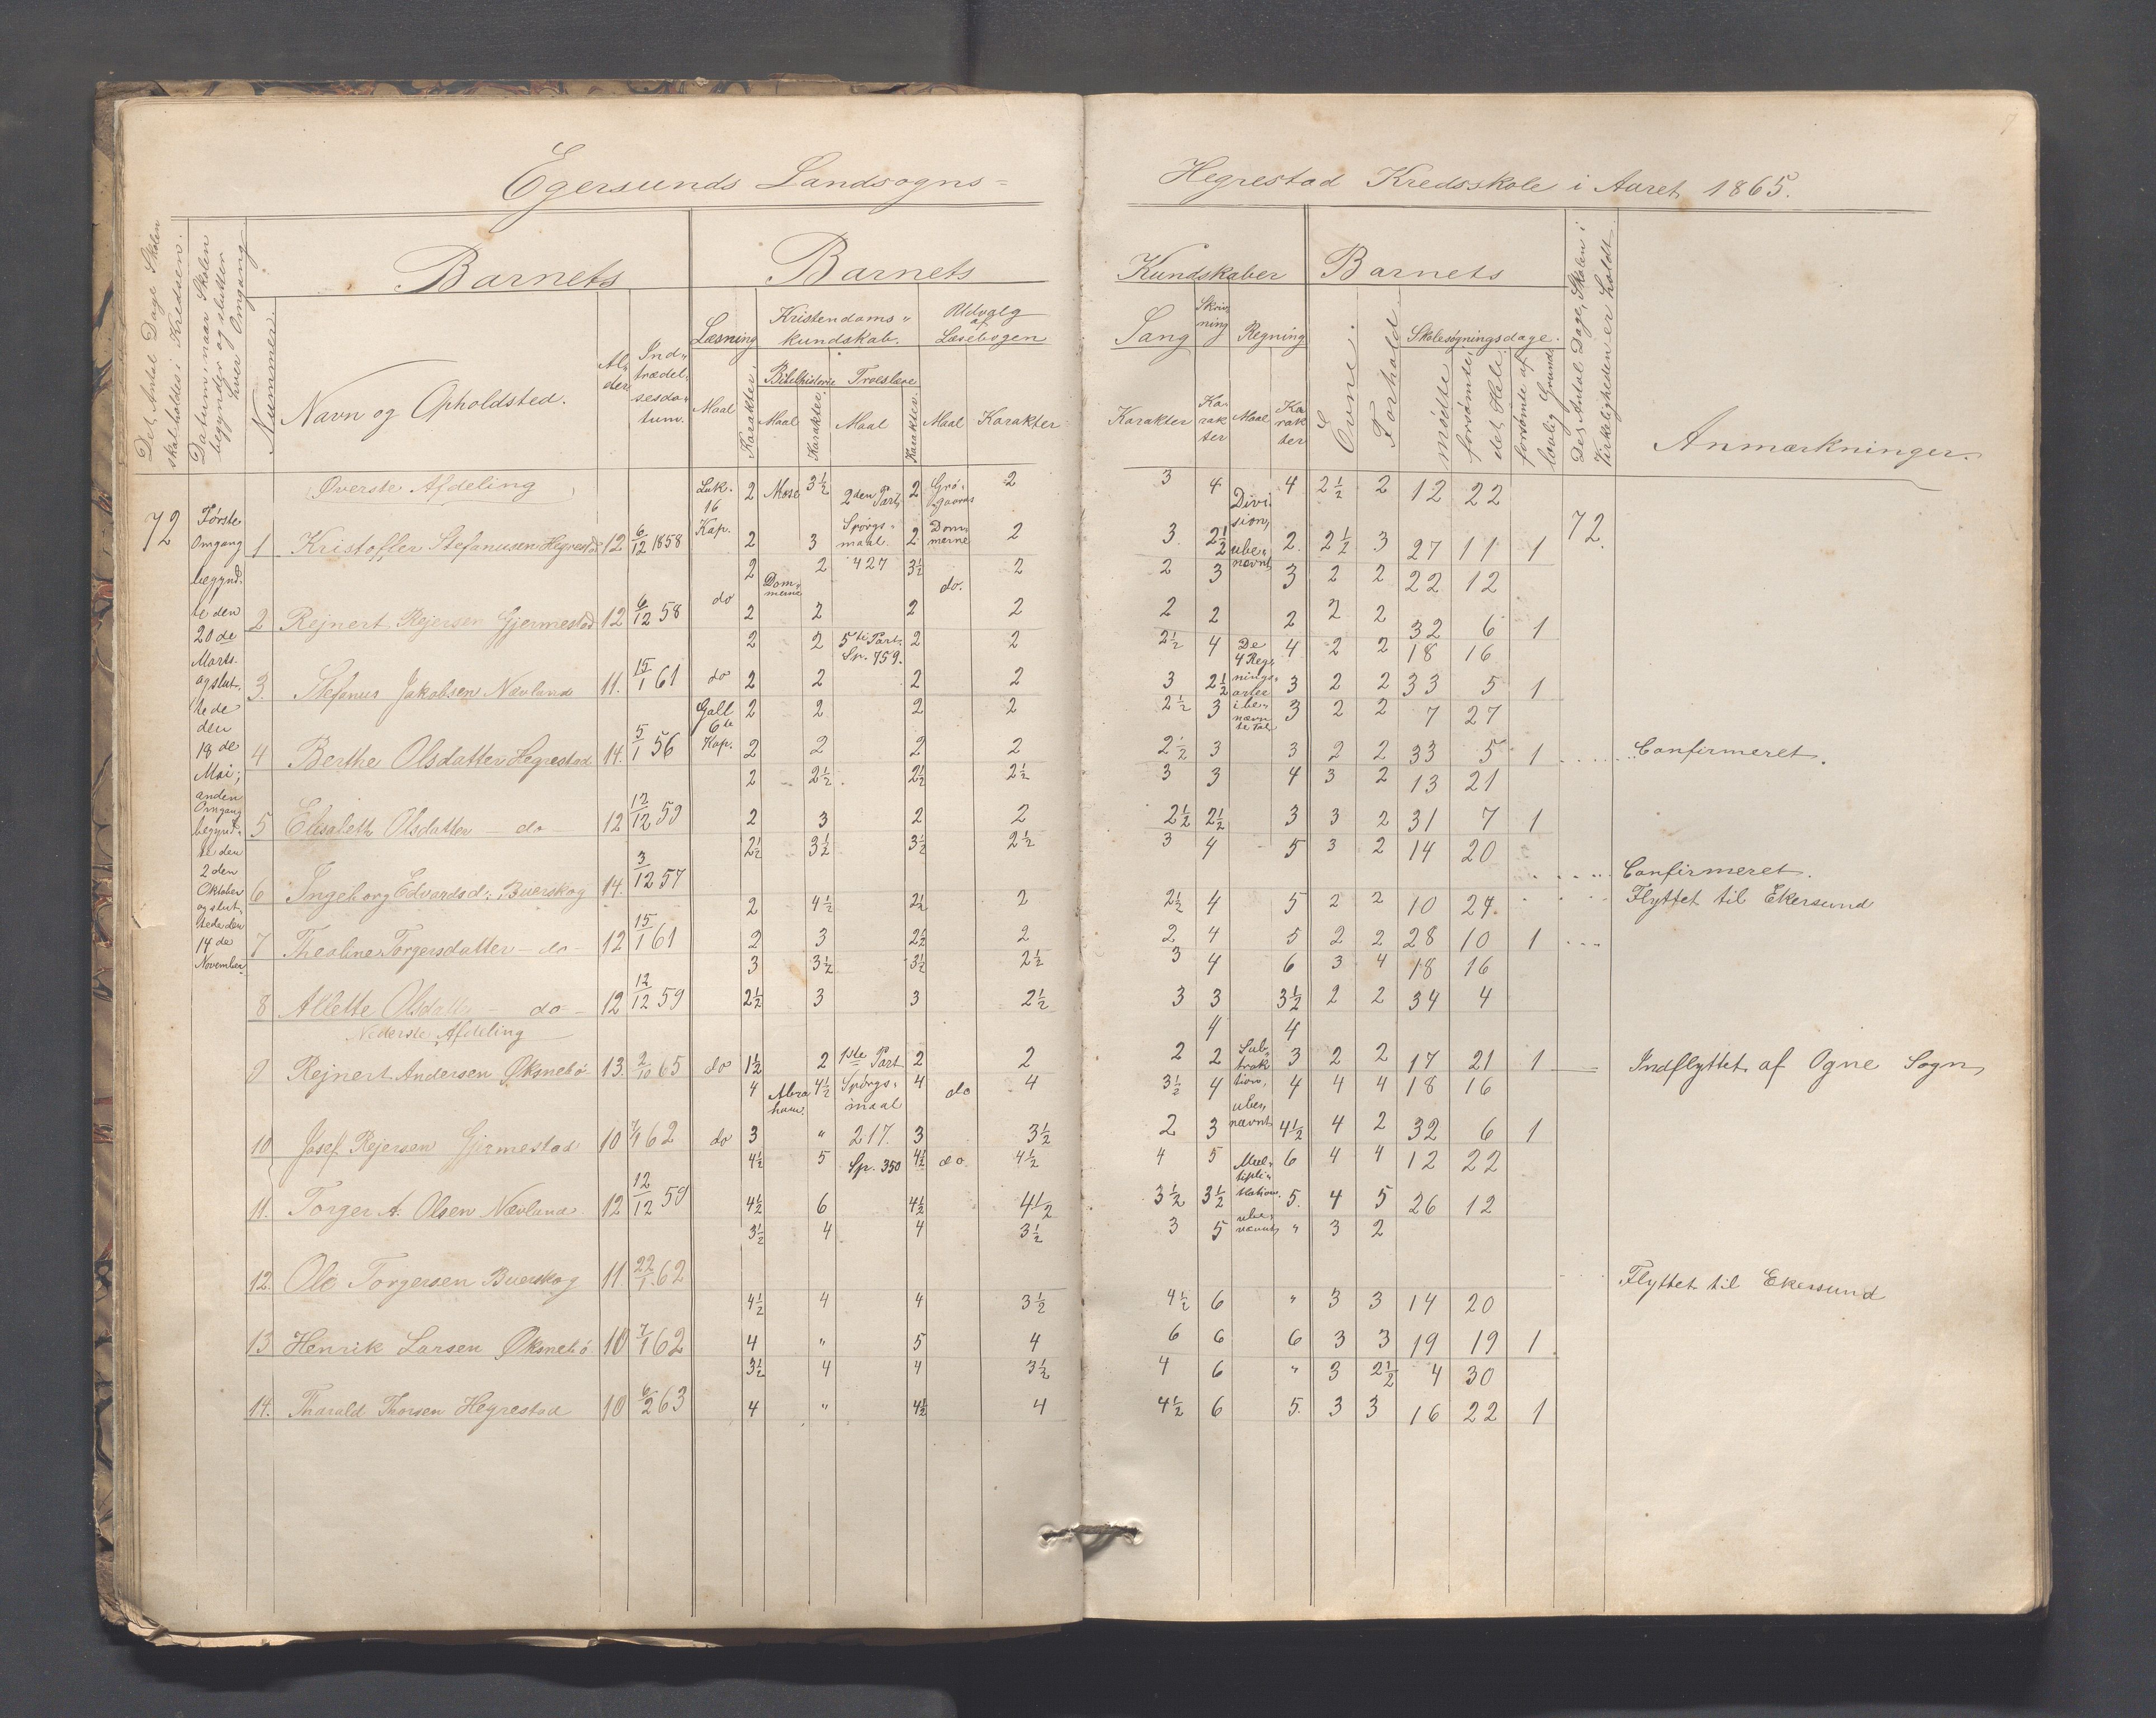 Egersunds Landsogns=
Hegrestad Kredsskole i Aaret 1865.
7
Det Antal Dage Skolen
skal holdes i Kredsen.
Datum, naar Skolen
begynder og slutter
hver Omgang
Nummer.
Barnets
Navn og Opholdsted.
Al-
der
Ind-
trædel-
sesda-
tum.
Barnets
Læsning
Maal
Karakter.
Kristendoms-
kundskab.
Bibelhistorie
Troeslære
Maal
Karakter.
Maal
Karakter.
Udvalg
af
Læsebogen
Maal
Karakter
Kundskaber
Sang
Karakter
Skriv-
ning
Ka-
rak
ter
Regning
Maal
Ka-
rak
ter
Barnets
Evne.
Forhold
Skolesøgningsdage.
mødte
forsømte.
det Hele
forsømte af
lovlig Grunde
Det Antal Dage, Skolen i
Virkeligheden er holdt.
Anmærkninger.
Øverste Afdeling
72
Første
Omgang
begynd-
te den
20de
Marts.
og slut-
tede
den
18de
Mai;
anden
Omgang
begynd-
te den
2den
Oktober
og slut-
tede den
14de
November.
Luk. 16 Kap. 2 Mose 3½ 2den Part 2 Grø- gaard 2 3 4 Divi- sion, 4 2½ 2 12 22
1 Kristoffer Stefanusen Hegrestad 12 6/12 1858 2 3 Spørgs- maal. 2 Dom- merne 2 3. 2½ ube- nævnt 2. 2½ 3 27 11 1 72.
2 Dom- merne 2 427 3½ do. 2 2 3 3 2 2 22 12
2 Rejnert Rejersen Gjermestad 12 6/12 58 do 2 2 2 2 2 2 2 2 2 32 6 1
2 2 5te Part. Sp. 759. 2 2 2½ 4 De 4 Reg- 4 2 2 18 16
3. Stefanus Jakobsen Nævland 11. 15/1 61 do 2 2 2 2 3 2½ nings- arter 3 2 2 33 5 1
Gall 6te Kap. 2 2 2 2 2½ 3 i be- nævn te Tal 3 2 2 7 27
4 Berthe Olsdatter Hegrestad 14. 5/1 56 2 2 2 2 2½ 3 3 2 2 33 5 1 Confirmeret.
2 2½ 2½ 2½ 3 3 4 3 2 13 21
5 Elisabeth Olsdatter - do 12 12/12 59 2 3 2 2 2½ 2½ 3 3 2 31 7 1
2½ 3½ 3½ 2½ 3 4 5 3 2 14 20
6 Ingeborg Edvardsd: Buerskog 14. 3/12 57 Confirmeret.
2 4½ 2½ 2 2½ 4 5 2 2 10 24. Flyttet til Ekersund
7 Theoline Torgersdatter - do - 12 15/1 61 2 3 2½ 2 2 4 5 2 2 28 10 1
3 3½ 3½ 2½ 3 4 6 3 4 18 16
8 Allette Olsdatter - do - 12 12/12 59 2½ 3 3 2½ 3 3 3½ 2 2 34 4
Nederste Afdeling
4 4
9 Rejnert Andersen Øksnebø 13. 2/10 65 do 1½ 2 1ste Part 2 2 2 2 Sub- trak 3 2 2 17 21 1 Indflyttet af Ogne Sogn
4 Abra ham. 4½ Spørgs- maal 4 do 4 3½ 4 tion, 4 4 4 18 16
10 Josef Rejersen Gjermestad 10 7/1 62 do 3 " 217. 3 3½ 2 3 ube- nævnt 4½ 4 2 32 6 1
4½ 5 Sp. 350 4½ do. 4½ 4 5 Mul- tipli- 6 4 4 12 22
11. Torger A. Olsen Nævland. 12 12/12 59 4½ 6 4½ 4½ 3½ 3½ kation. 5. 4 5 26 12
3½ 4 4 3½ 3 5 ube- nævnt " 3 2
12. Ole Torgersen Buerskog 11. 22/1. 62 Flyttet til Ekersund
4½ 4 4 3½ 4½ 6 " 3 3 14 20
13 Henrik Larsen Øksnebø 10 7/1 62 4 " 5 4 6 6 6 3 3 19 19 1
3½ 4 4 3½ 4 6 " 3 2½ 4 30
14. Tharald Thorsen Hegrestad 10 6/2 63 4 " 4½ 4 4½ 6 5. 3 3 16 22 1